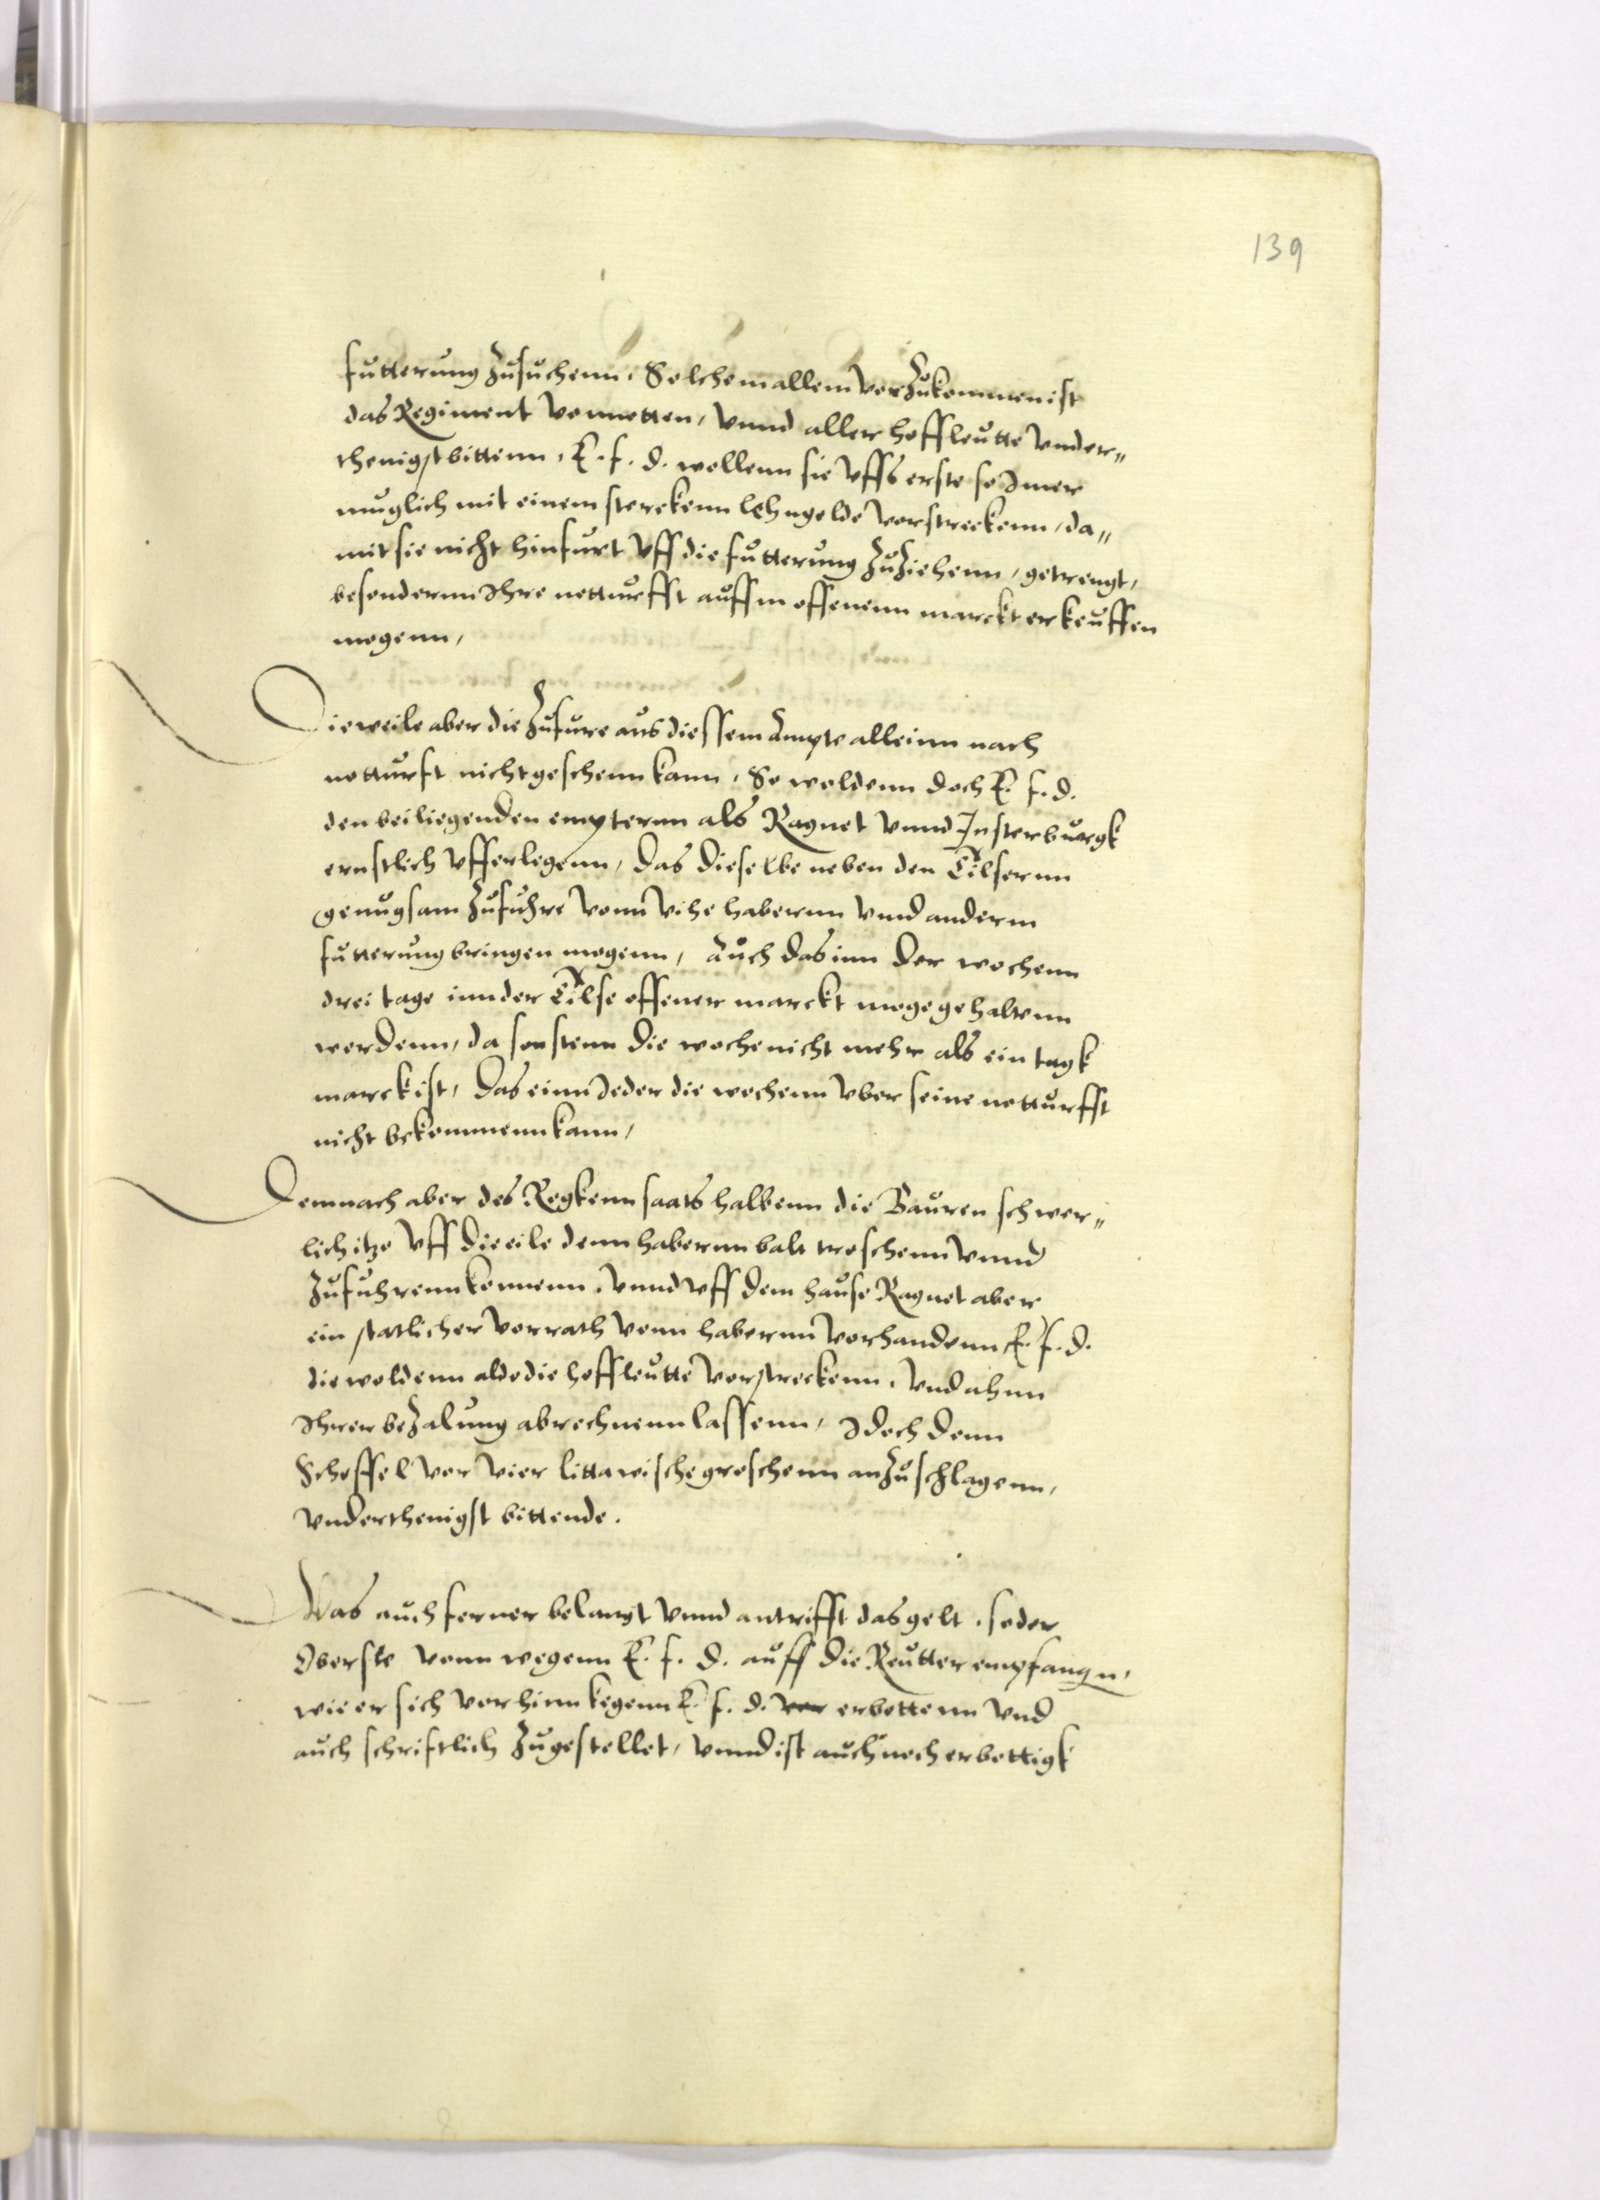 139
futterung zusuchenn. Solchem allem vorzukommen ist
das Regiment vonnotten, vnnd aller hoffleutte vnder„
thenigst bittenn, E. f. d. wollenn sie vffs erste so Imer
muglich mit einem sterckenn lehngelde vorstreckenn, da„
mit sie nicht hinfurt vff die futterung zuziehenn, getrengt,
besondernn Ihre notturfft auffm offenenn marckt erkeuffen
mogenn,
Dieweile aber die zufure aus diessem Ampte alleinn nach
notturft nicht geschenn kann, So woldenn doch E. f. d.
den beiliegenden empternn als Ragnet vnnd Insterburgk
ernstlich vfferlegenn, das dieselbe neben den Tilsernn
genugsam zufuhre vonn vihe habernn vnd anderm
futterung bringen mogenn, Auch das inn der wochenn
drei tage inn der Tilse offener marckt moge gehaltenn
werdenn, da sonstenn die woche nicht mehr als ein tagk
marck ist, Das einn Ieder die wochenn vber seine notturfft
nicht bekommenn kann,
Demnach aber des Rogkenn saats halbenn die Bauren schwer„
lich itzo vff die eile denn habernn balt troschenn vnnd
zufuhrenn konnenn, vnnd vff dem hause Ragnet aber
ein statlicher vorrath vonn habernn vorhandenn E. f. d.
die woldenn aldo die hoffleutte vorstreckenn, vnd ahnn
Ihrer bezalung abrechnenn lassenn, Idoch denn
Scheffel vor vier littawische groschenn anzuschlagenn,
vnderthenigst bittende.
Was auch ferner belangt vnnd antrifft das gelt, so der
Oberste vonn wegenn E. f. d. auff die Reutter empfangn,
wie er sich vorhinn kegenn E. f. d. vor erbottenn vnd
auch schriftlich zugestellet, vnnd ist auch noch erbottigk